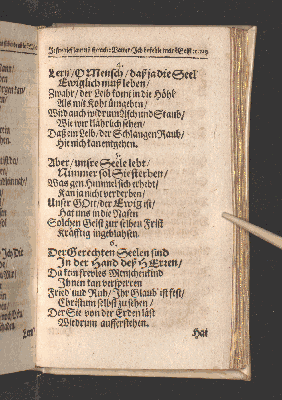 4.
Lern / O Mensch / daß ja die Seel
Ewiglich muß leben /
Zwahr / der Leib komt in die Höhl
Als mit Koht ümgeben /
Wird auch widrum Asch und Staub /
Wie wir klährlich sehen /
Daß ein Leib / der Schlangen Raub /
Hie nich kan entgehen.
5.
Aber / unsre Seele lebt /
Nimmer sol Sie sterben /
Was gen Himmel sich erhebt /
Kan ja nicht verderben /
Unser GOtt / der Ewig ist /
Hat uns in die Nasen
Solchen Geist zur selben Frist
Kräfftig ingeblasen.
6.
Der Gerechten Seelen sind
In der Hand deß HErren /
Da kein frevles Menschenkind
Ihnen kan versperren
Fried und Ruh / Ihr Glaub' ist fest /
Christum selbst zu sehen /
Der Sie von der Erden läst
Wiedrum aufferstehen.
Hat